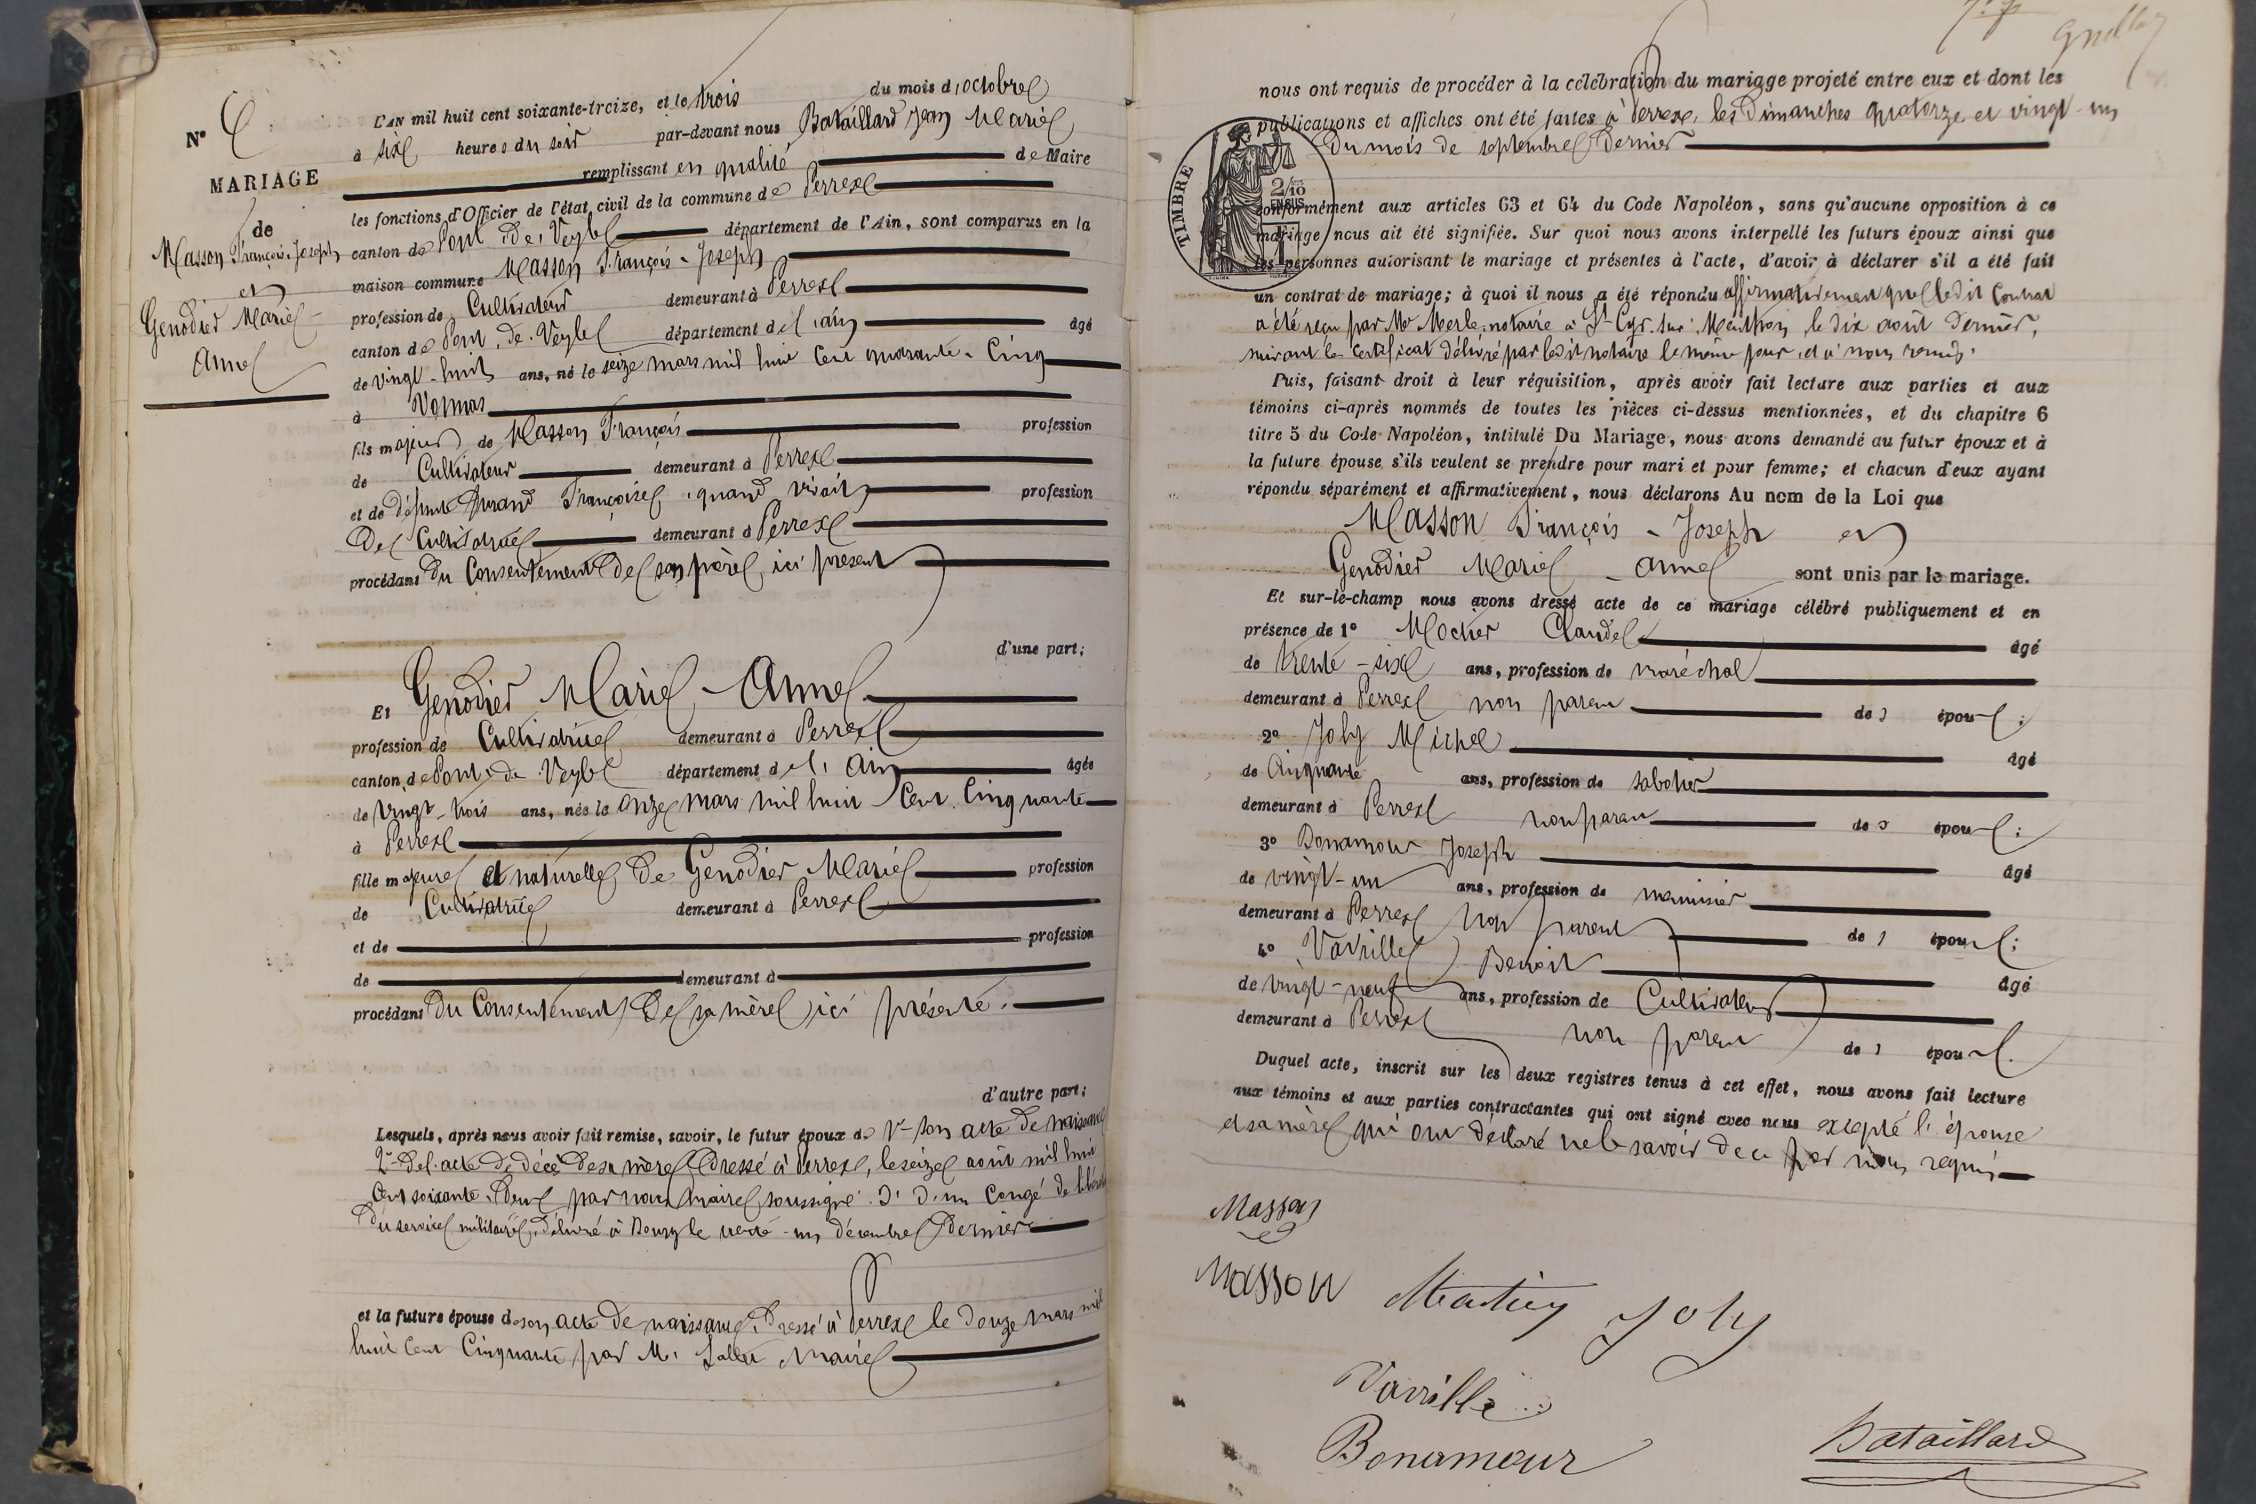 N° 6
MARIAGE
de
Masson François-Joseph
et
Genodier Marie-
Anne
L'AN mil huit cent soixante-treize, et le trois du mois d'octobre
à six heures du soir par-devant nous Bataillard Jean Marie
remplissant en qualité de Maire
les fonctions d'Officier de l'état civil de la commune de Perrex
canton de Pont de Veyle département de l'Ain, sont comparus en la
maison commune Masson François-Joseph
profession de Cultivateur demeurant à Perrex
canton de Pont de Veyle département de l'ain âgé
de vingt-huit ans, né le seize mars mil huit cent quarante-cinq
à Vonnas
fils majeur de Masson François profession
de Cultivateur demeurant à Perrex
et de défunte Durand Françoise, quand vivait profession
De Cultivatrice demeurant à Perrex
procédant du Consentement de son père, ici présent
d'une part;
Et Genodier Marie-Anne
profession de Cultivatrice demeurant à Perrex
canton de Pont de Veyle département de l'Ain âgée
de vingt-trois ans, née le onze mars mil huit cent cinquante
à Perrex
fille majeure et naturelle de Genodier Marie profession
de Cultivatrice demeurant à Perrex
et de profession
de demeurant à
procédant du Consentement de sa mère, ici présente.
d'autre part;
Lesquels, après nous avoir fait remise, savoir, le futur époux de 1°- son acte de naissance
2°- de l'acte de décè de sa mère, dressé à Perrex, le seize août mil huit
cent soixante-deux par nous maire soussigné. 3° d'un congé de libération
du service militaire, délivré à Bourg le trente-un décembre dernier
et la future épouse de son acte de naissance, dressé à Perrex le douze mars mil
huit cent cinquante par M. maire
Guillon
nous ont requis de procéder à la célébration du mariage projeté entre eux et dont les
publications et affiches ont été faites à Perrex, les dimanches quatorze et vingt-un
du mois de septembre dernier
TIMBRE
2/10
EN SUS
conformément aux articles 63 et 64 du Code Napoléon, sans qu'aucune opposition à ce
mariage nous ait été signifiée. Sur quoi nous avons interpellé les futurs époux ainsi que
les personnes autorisant le mariage et présentes à l'acte, d'avoir à déclarer s'il a été fait
un contrat de mariage; à quoi il nous a été répondu affirmativement que ledit contrat
a été reçu par Me Merle, notaire à St Cyr-sur-Menthon, le dix août dernier,
suivant le certificat délivré par ledit notaire le même jour, et à nous remis.
Puis, faisant droit à leur réquisition, après avoir fait lecture aux parties et aux
témoins ci-après nommés de toutes les pièces ci-dessus mentionnées, et du chapitre 6
titre 5 du Code Napoléon, intitulé Du Mariage, nous avons demandé au futur époux et à
la future épouse s'ils veulent se prendre pour mari et pour femme; et chacun d'eux ayant
répondu séparément et affirmativement, nous déclarons Au nom de la Loi que
Masson François-Joseph et
Genodier Marie-Anne sont unis par le mariage.
Et sur-le-champ nous avons dressé acte de ce mariage célébré publiquement et en
présence de 1° Claude âgé
de trente-six ans, profession de maréchal
demeurant à Perrex non parent des époux;
2° Joly Michel âgé
de cinquante ans, profession de sabotier
demeurant à Perrex non parent des époux;
3° Bonamour Joseph âgé
de vingt-un ans, profession de menuisier
demeurant à Perrex non parent des époux;
4° Vavrille Benoit âgé
de vingt-neuf ans, profession de Cultivateur
demeurant à Perrex non parent des époux.
Duquel acte, inscrit sur les deux registres tenus à cet effet, nous avons fait lecture
aux témoins et aux parties contractantes qui ont signé avec nous excepté l'épouse
et sa mère qui ont déclaré ne le savoir de ce par nous requis
Masson
Masson Joly
Vavrille
Bonamour Bataillard